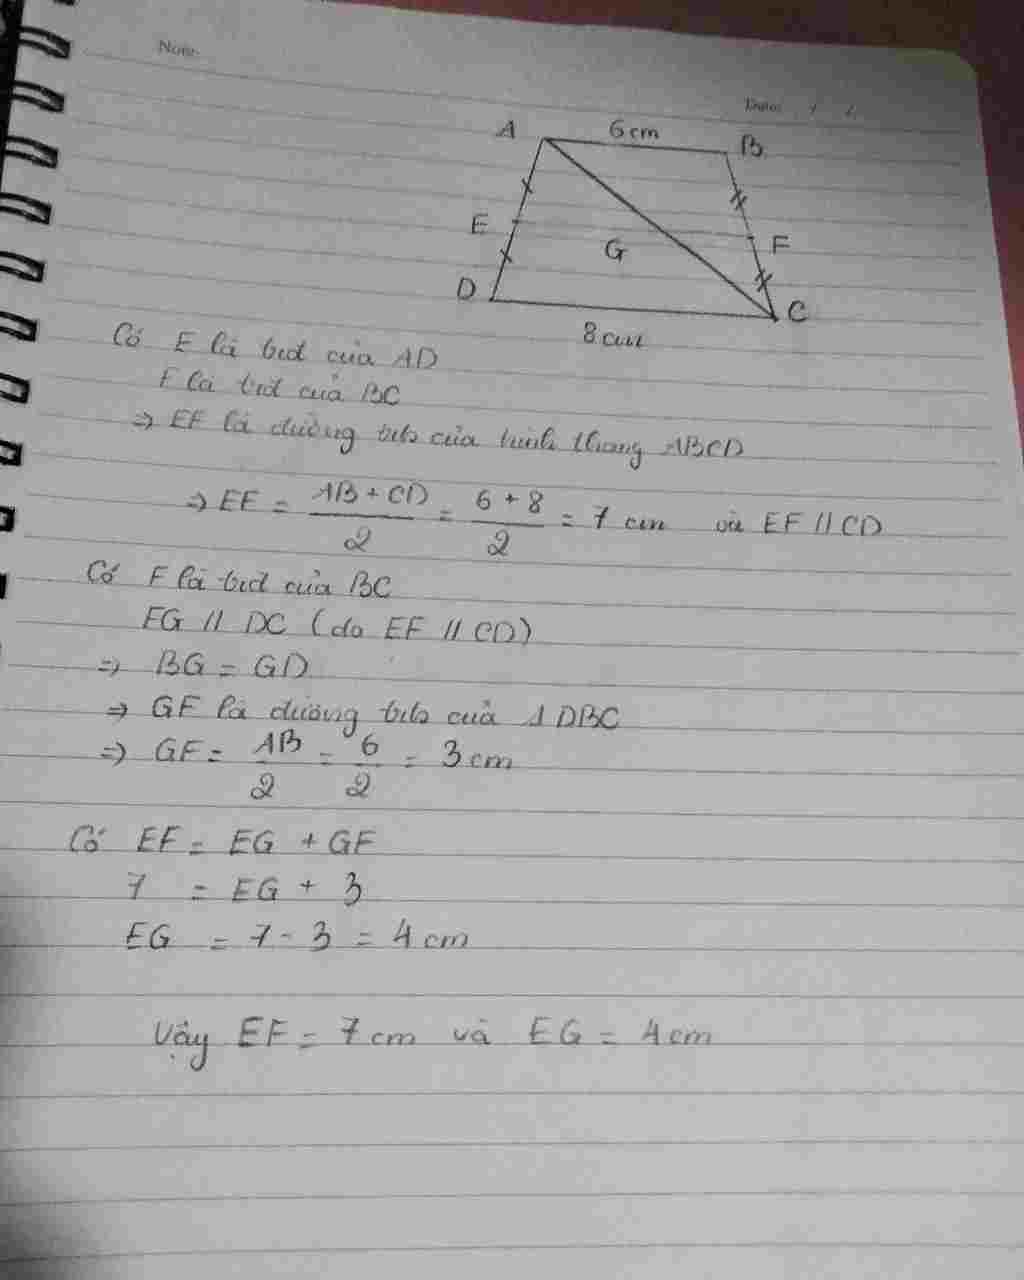 Note:
Date: / /
A 6cm B
E G F
D C
8cm
Có E là trđ của AD
F là trđ của BC
=> EF là đường trb của hình thang ABCD
=> EF = AB + CD / 2 = 6 + 8 / 2 = 7 cm và EF // CD
Có F là trđ của BC
FG // DC (do EF // CD)
=> BG = GD
=> GF là đường trb của Δ DBC
=> GF = AB / 2 = 6 / 2 = 3 cm
Có EF = EG + GF
7 = EG + 3
EG = 7 - 3 = 4 cm
Vậy EF = 7 cm và EG = 4 cm